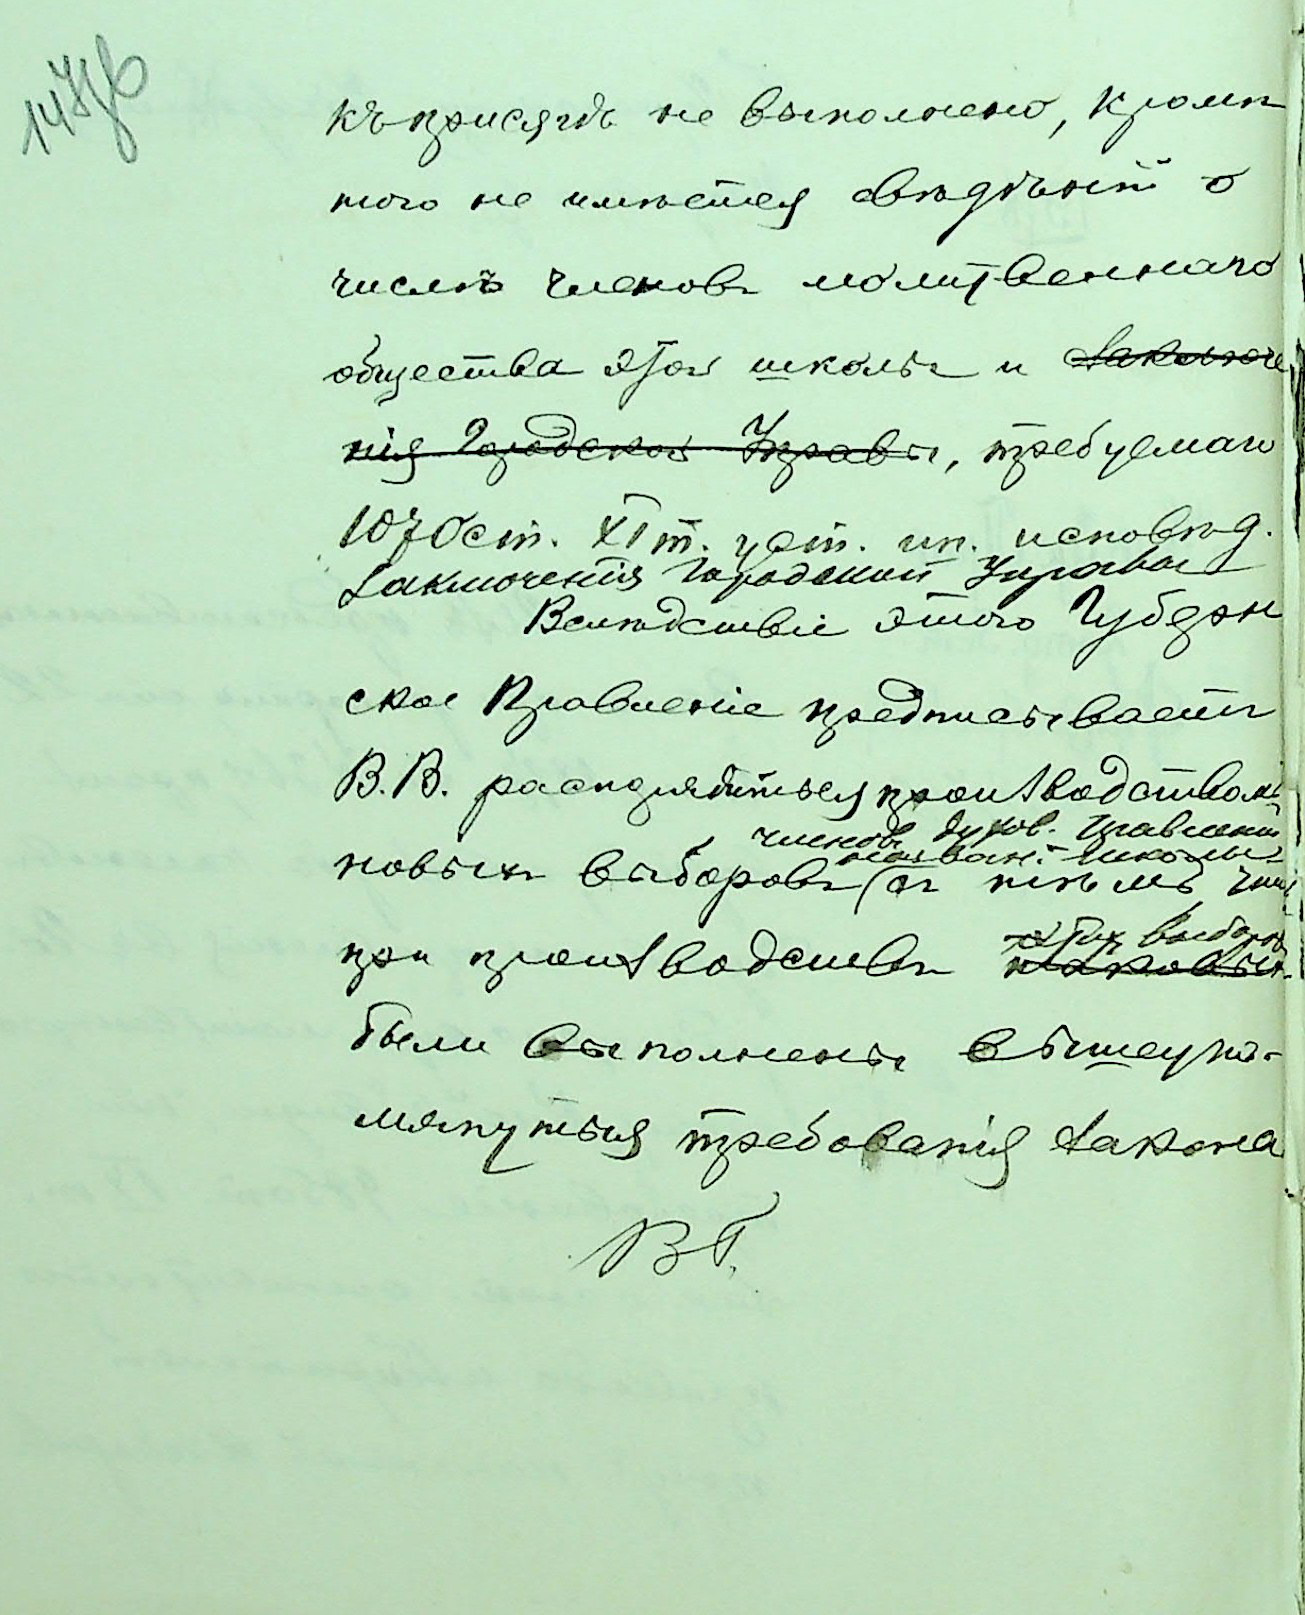 къ присягѣ не выполнено, кромѣ
того не имѣется свѣдѣній о
числѣ членовъ молитвеннаго
общества этой школы и заключе
нія Городской Управы, требуемаго
1070 ст. XI т. уст. ин. исповѣд.
заключенія Городской Управы
Вслѣдствіе этого Губерн
ское Правленіе предписываетъ
В.В. распорядиться производствомъ
членовъ духов. Правленія
назван. школы
новыхъ выборовъ съ тѣмъ, чтобы
этих выборовъ
при производствѣ таковыхъ
были выполнены вышеупо-
мянутыя требованія закона
ВГ.